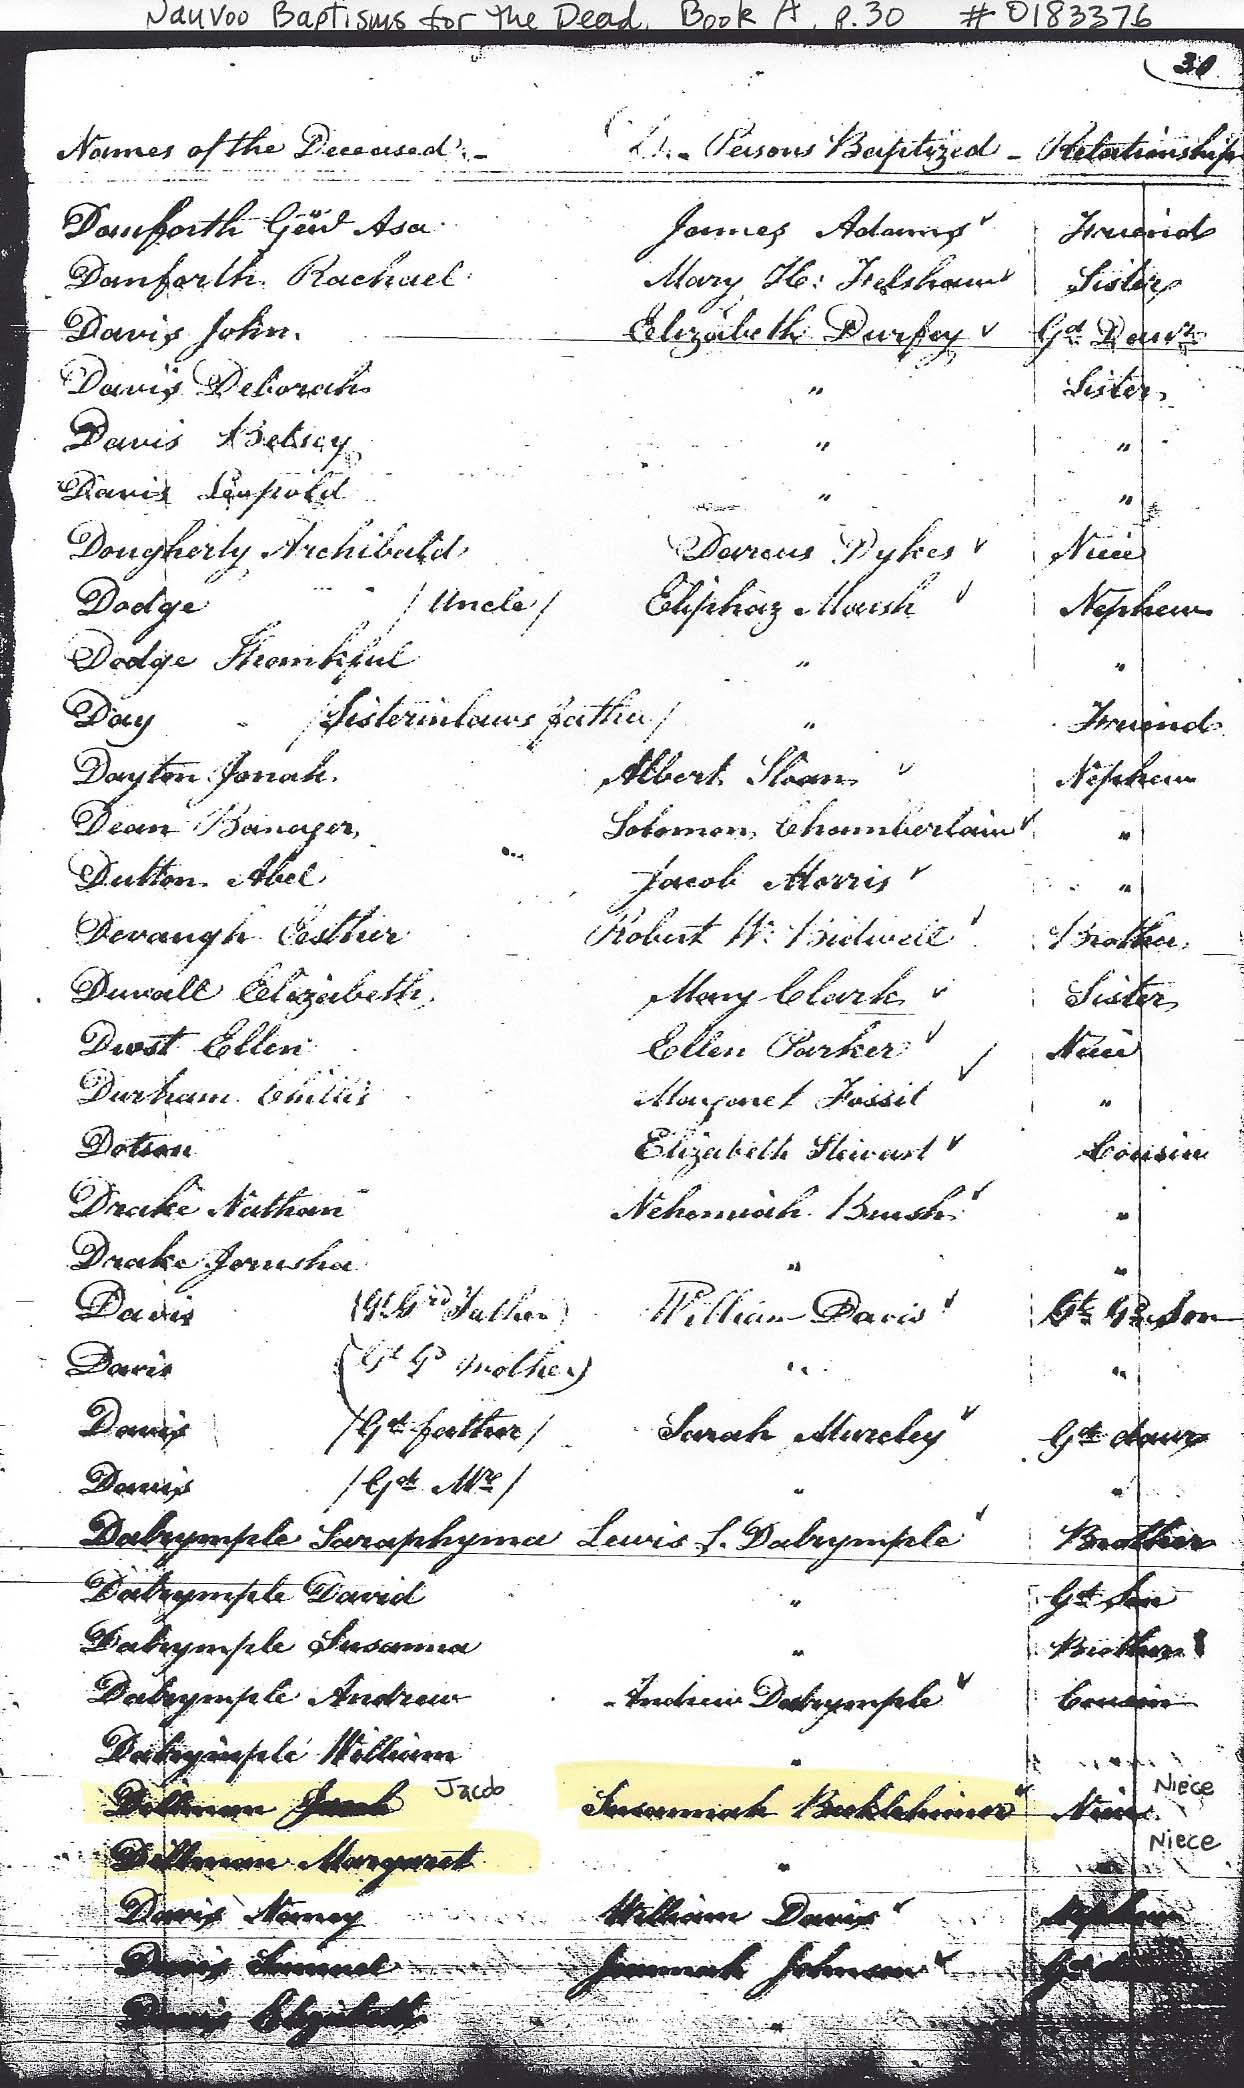 Nauvoo Baptisms for the Dead, Book A, p.30 #0183376
30
Names of the Deceased Persons Baptized Relationship
Danforth Asa James Adams Freind
Danforth Rachael Mary H: Felshaw Sister
Davis John. Elizabeth Durfey Gd Daur
Davis Deborah " Sister
Davis Betsey " "
Davis Leopold " "
Dougherty Archibald Darcus Dykes Niece
Dodge /Uncle/ Eliphaz Marsh Nephew
Dodge Thankful " "
Day /Sisterinlaws father/ " Freind
Dayton Jonah Albert Sloan Nephew
Dean Banager Solomon Chamberlain "
Dutton Abel Jacob Morris "
Devaugh Esther Robert W. Bidwell Brother
Duvall Elizabeth Mary Clark Sister
Dust Ellen Ellen Parker Niece
Durham Margaret Fossit "
Dotson Elizabeth Stewart Cousin
Drake Nathan Nehemiah Brush "
Drake Jerusha " "
Davis (Gt Gd Father) William Davis Gt Gd Son
Davis (Gt Gd Mother) " "
Davis /Gd father/ Sarah Gd daur
Davis /Gd Mr/ " "
Dalrymple Saraphyma Lewis L. Dalrymple Brother
Dalrymple David " Gd Son
Dalrymple Susanna " Brother
Dalrymple Andrew Andrew Dalrymple Cousin
Dalrymple William " "
Dillman Jacob Jacob Susannah Niece Niece
Dillman Margaret " " Niece
Davis Nancy William Davis Nephew
Davis Samuel Johnson
Davis Elizabeth "